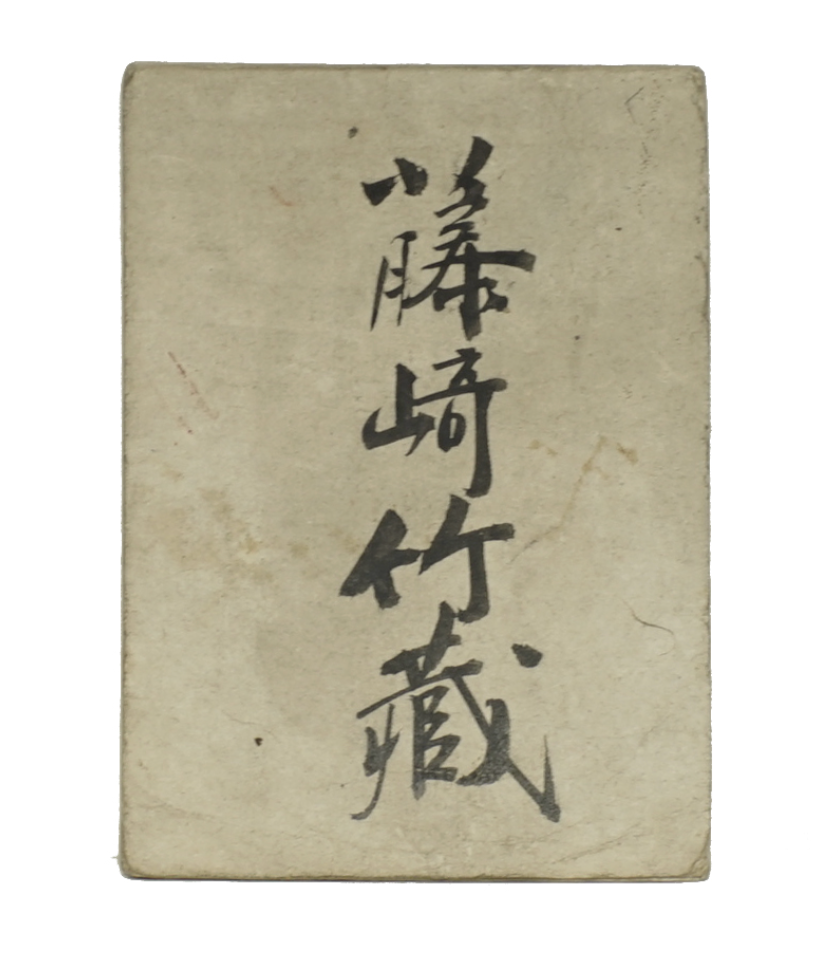 藤崎竹藏